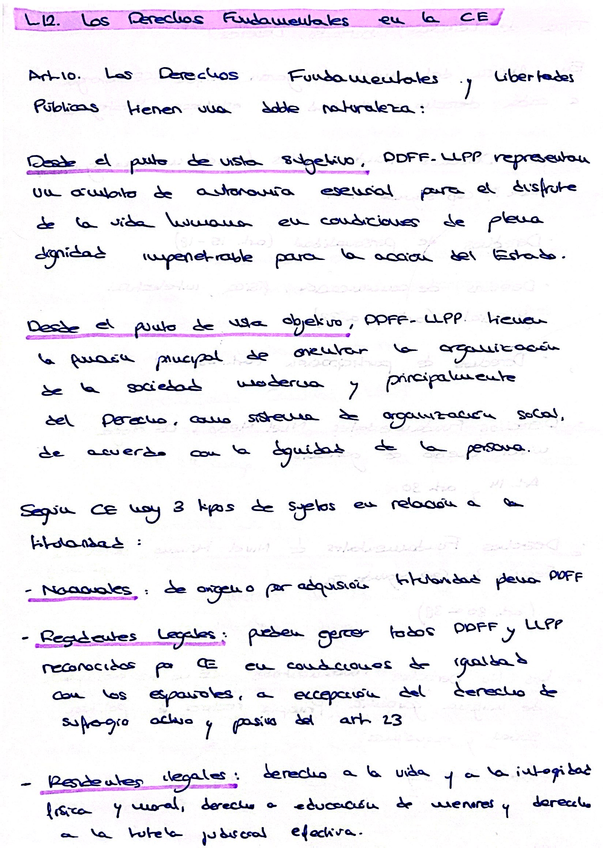 L12. Los Derechos Fundamentales en la CE
Art 10. Los Derechos Fundamentales y Libertades
Públicas tienen una doble naturaleza:
Desde el punto de vista subjetivo, DDFF-LLPP representan
un ámbito de autonomía esencial para el disfrute
de la vida humana en condiciones de plena
dignidad impenetrable para la acción del Estado.
Desde el punto de vista objetivo, DDFF-LLPP. tienen
la función principal de orientar la organización
de la sociedad moderna y principalmente
del Derecho, como sistema de organización social,
de acuerdo con la dignidad de la persona.
Según CE hay 3 tipos de sujetos en relación a la
titularidad:
- Nacionales: de origen o por adquisición titularidad plena DDFF
- Residentes Legales: pueden ejercer todos DDFF y LLPP
reconocidos po CE en condiciones de igualdad
con los españoles, a excepción del derecho de
sufragio activo y pasivo del art 23
- Residentes ilegales: derecho a la vida y a la integridad
física y moral, derecho a educación de menores y derecho
a la tutela judicial efectiva.